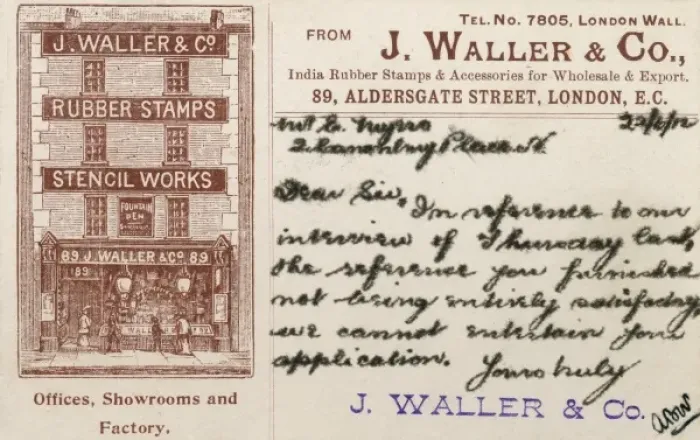 J. WALLER & Co
RUBBER STAMPS
STENCIL WORKS
FOUNTAIN
PEN
89 J. WALLER & Co 89
189
WALLER
Offices, Showrooms and
Factory.
TEL. No. 7805, LONDON WALL.
FROM
J. WALLER & Co.,
India Rubber Stamps & Accessories for Wholesale & Export.
89, ALDERSGATE STREET, LONDON, E.C.
Mr C.
2 Canonbury Place N.
Dear Sir,
In reference to our
interview of Thursday last,
the reference you furnished
not being entirely satisfactory,
we cannot entertain your
application.
Yours truly
J. WALLER & Co.